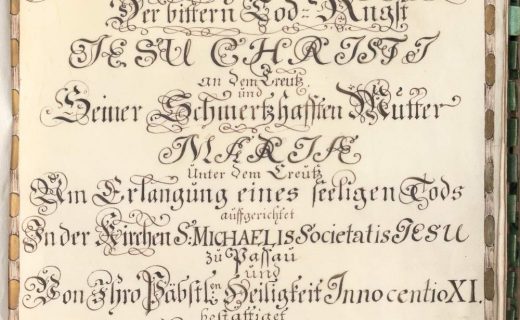 Der bittern Tod-Angst
JESU CHRISTI
an dem Creutz
und
Seiner Schmertzhafften Mutter
MARIÆ
Unter dem Creutz
Um Erlangung eines seeligen Tods
auffgerichtet
In der Kirchen S. MICHAELIS Societatis JESU
zu Passau
und
Von Ihro Päbstl. Heiligkeit Innocentio XI.
bestattiget